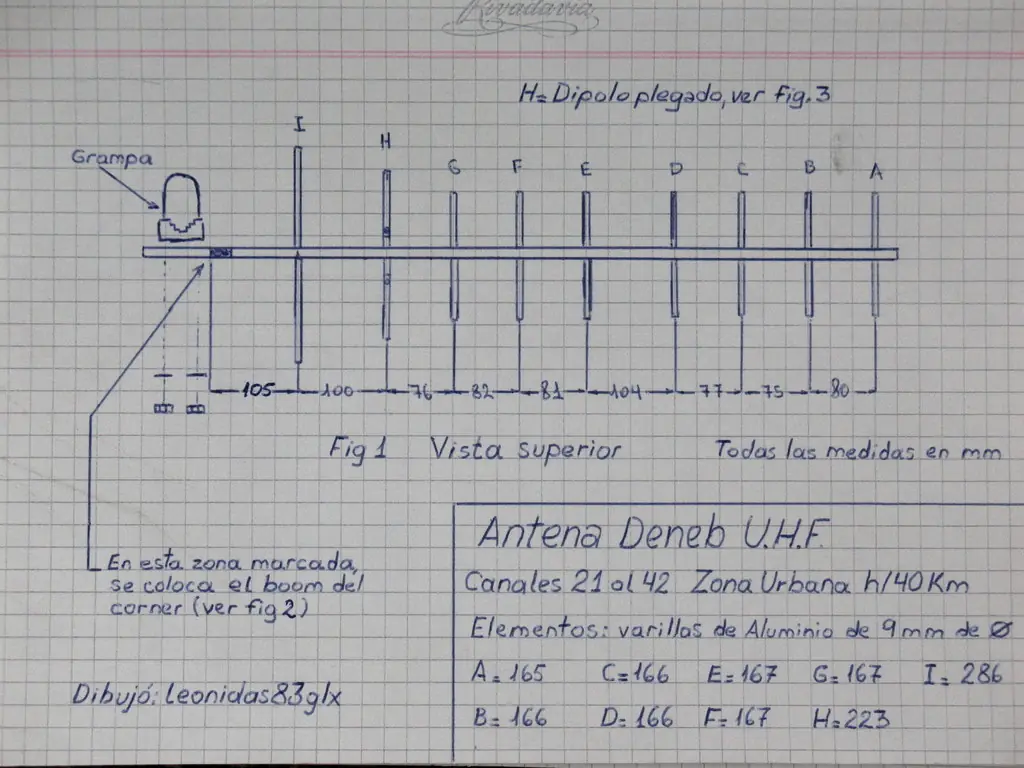 Rivadavia
H=Dipolo plegado, ver fig. 3
I
H
Grampa
G F E D C B A
105 100 76 82 81 104 77 75 80
Fig 1 Vista superior Todas las medidas en mm
En esta zona marcada,
se coloca el boom del
corner (ver fig 2)
Dibujó: leonidas83glx
Antena Deneb U.H.F.
Canales 21 al 42 Zona Urbana h/40Km
Elementos: varillas de Aluminio de 9mm de Ø
A=165 C=166 E=167 G=167 I=286
B=166 D=166 F=167 H=223